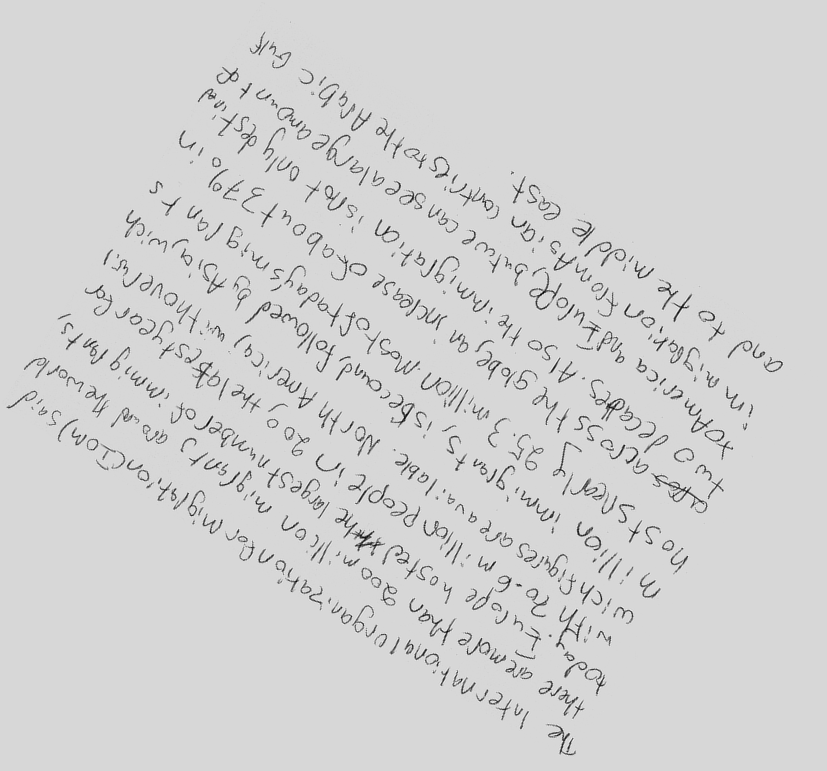 The International organization for migration (IOM) said
there are more than 200 million migrants around the world
today. Europe hosted the largest number of immigrants,
with 70.6 million people in 200, the latest year for
wich figures are available. North America, with over 45.1
million immigrants, is second, followed by Asia, wich
hosts nearly 25.3 million. Most of today's migrants
across the globe, an increase of about 37% in
two decades. Also the immigration is not only destined
to America and Europe, but we can see a large amount of
immigration from Asian contries to the Arabic Gulf
and to the middle east.